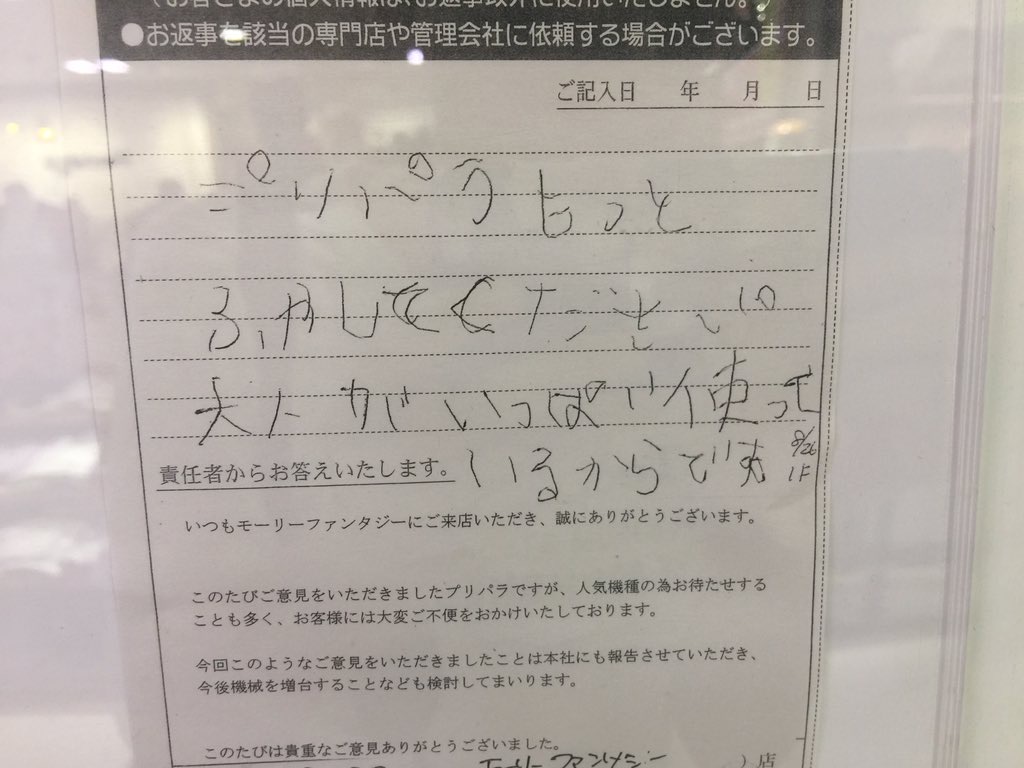 （お客さまの個人情報は、お返事以外に使用いたしません。
●お返事を該当の専門店や管理会社に依頼する場合がございます。
ご記入日　年　月　日
プリパラもっと
ふやしてください。
大人がいっぱい使って
いるからです
9/26
1F
責任者からお答えいたします。
いつもモーリーファンタジーにご来店いただき、誠にありがとうございます。
このたびご意見をいただきましたプリパラですが、人気機種の為お待たせする
ことも多く、お客様には大変ご不便をおかけいたしております。
今回このようなご意見をいただきましたことは本社にも報告させていただき、
今後機械を増台することなども検討してまいります。
このたびは貴重なご意見ありがとうございました。
モーリーファンタジー　）店